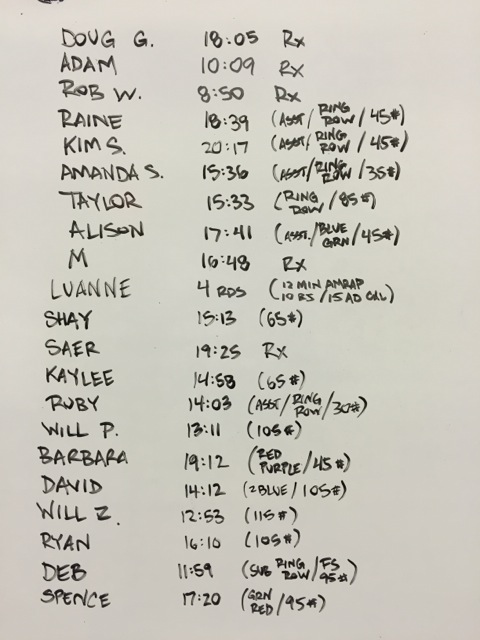 DOUG G. 18:05 Rx
ADAM 10:09 Rx
ROB W. 8:50 Rx
RAINE 18:39 (ASST/RING ROW/45#)
KIM S. 20:17 (ASST/RING ROW/45#)
AMANDA S. 15:36 (ASST/RING ROW/35#)
TAYLOR 15:33 (RING ROW/85#)
ALISON 17:41 (ASST./BLUE GRN/45#)
M 16:48 Rx
LUANNE 4 RDS (12 MIN AMRAP 10 RS/15 AD CAL)
SHAY 15:13 (65#)
SAER 19:25 Rx
KAYLEE 14:58 (65#)
RUBY 14:03 (ASST/RING ROW/30#)
WILL P. 13:11 (105#)
BARBARA 19:12 (RED PURPLE/45#)
DAVID 14:12 (2BLUE/105#)
WILL Z. 12:53 (115#)
RYAN 16:10 (105#)
DEB 11:59 (SUB RING ROW/FS 95#)
SPENCE 17:20 (GRN RED/95#)